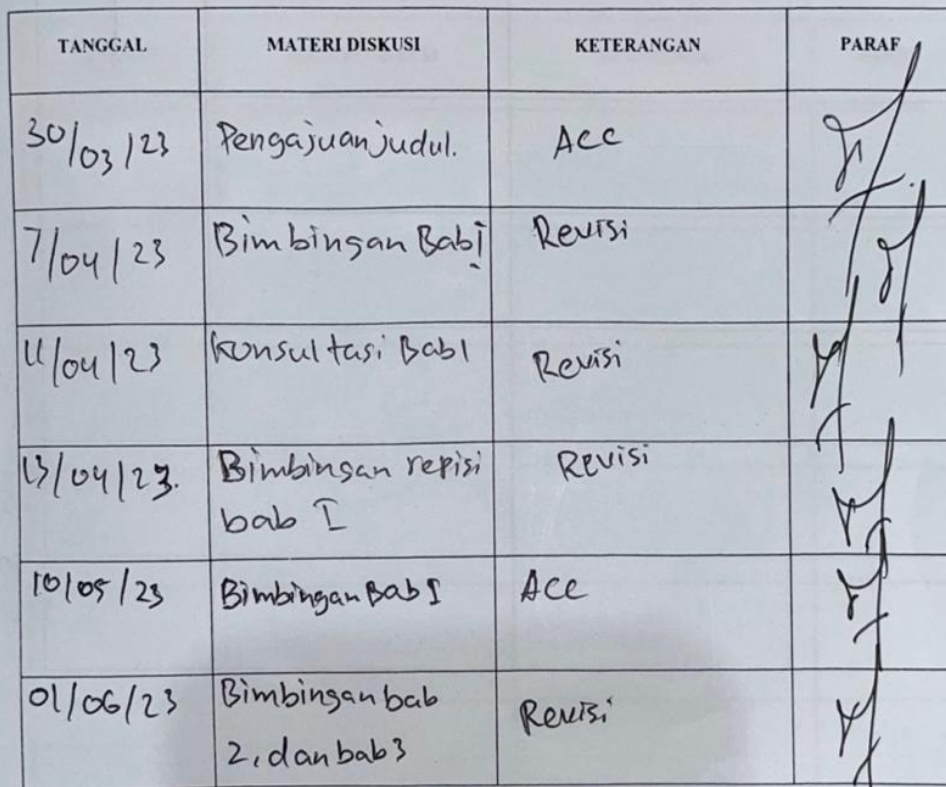 TANGGAL MATERI DISKUSI KETERANGAN PARAF
30/03/23 Pengajuan judul. Acc
7/04/23 Bimbingan Bab I Revisi
11/04/23 Konsultasi Bab 1 Revisi
13/04/23. Bimbingan repisi Revisi
bab I
10/05/23 Bimbingan Bab I Acc
01/06/23 Bimbingan bab Revisi
2, dan bab 3